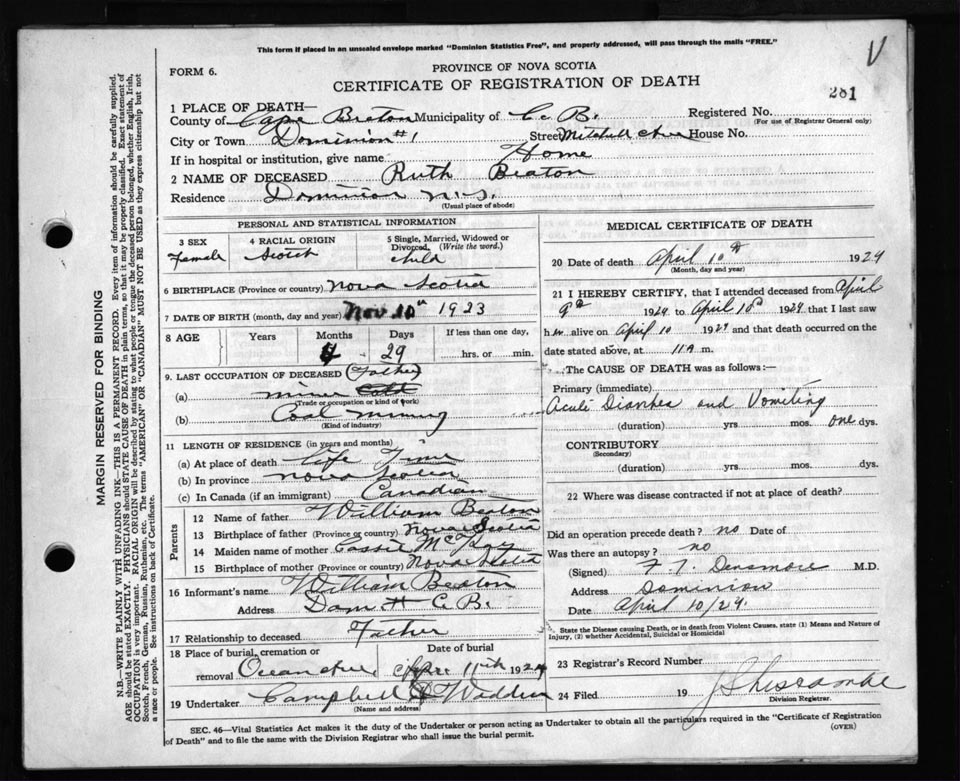 This form if placed in an unsealed envelope marked "Dominion Statistics Free", and properly addressed, will pass through the mails "FREE."
V
FORM 6.
PROVINCE OF NOVA SCOTIA
CERTIFICATE OF REGISTRATION OF DEATH
281
1 PLACE OF DEATH—
County of Cape Breton Municipality of C. B. Registered No.
(For use of Registrar General only)
City or Town Dominion #1 Street Mitchell Ave House No.
If in hospital or institution, give name Home
2 NAME OF DECEASED Ruth Beaton
Residence Dominion N.S.
(Usual place of abode)
PERSONAL AND STATISTICAL INFORMATION
3 SEX Female
4 RACIAL ORIGIN Scotch
5 Single, Married, Widowed or Divorced, (Write the word.) child
6 BIRTHPLACE (Province or country) Nova Scotia
7 DATE OF BIRTH (month, day and year) Nov 1923
8 AGE Years Months Days If less than one day,
4 29 hrs. or min.
9. LAST OCCUPATION OF DECEASED (Father)
(a) miner
(Trade or occupation or kind of work)
(b) Coal mining
(Kind of industry)
11 LENGTH OF RESIDENCE (in years and months)
(a) At place of death Life Time
(b) In province Nova Scotia
(c) In Canada (if an immigrant) Canadian
Parents
12 Name of father William Beaton
13 Birthplace of father (Province or country) Nova Scotia
14 Maiden name of mother Cassie
15 Birthplace of mother (Province or country) Nova Scotia
16 Informant's name William Beaton
Address Dom # C. B.
17 Relationship to deceased Father
18 Place of burial, cremation or removal Date of burial
11th 1924
19 Undertaker Campbell & Wadden
(Name and address)
MEDICAL CERTIFICATE OF DEATH
20 Date of death April 10th 1924
(Month, day and year)
21 I HEREBY CERTIFY, that I attended deceased from April
9th 1924 to April 10th 1924 that I last saw
her alive on April 10 1924 and that death occurred on
date stated above, at 11 A m.
The CAUSE OF DEATH was as follows:—
Primary (immediate)
Acute Diarrhea and Vomiting
(duration) yrs. mos. one dys.
CONTRIBUTORY
(Secondary)
(duration) yrs. mos. dys.
22 Where was disease contracted if not at place of death?
Did an operation precede death? no Date of
Was there an autopsy? no
(Signed) F. T. Densmore M.D.
Address Dominion
Date April 10/24.
State the Disease causing Death, or in death from Violent Causes, state (1) Means and Nature of Injury, (2) whether Accidental, Suicidal or Homicidal
23 Registrar's Record Number
24 Filed 19
Division Registrar.
SEC. 46—Vital Statistics Act makes it the duty of the Undertaker or person acting as Undertaker to obtain all the particulars required in the "Certificate of Registration
of Death" and to file the same with the Division Registrar who shall issue the burial permit.
(OVER)
MARGIN RESERVED FOR BINDING
N.B.—WRITE PLAINLY WITH UNFADING INK—THIS IS A PERMANENT RECORD. Every item of information should be carefully supplied.
AGE should be stated EXACTLY. PHYSICIANS should STATE CAUSE OF DEATH in plain terms, so that it may be properly classified. Exact statement of
OCCUPATION is very important. RACIAL ORIGIN will be described by stating to what people or tongue the deceased person belonged, whether English, Irish,
Scotch, French, German, Russian, Ruthenian, etc. The terms "AMERICAN" OR "CANADIAN" MUST NOT BE USED as they express citizenship but not
a race or people. See instructions on back of Certificate.